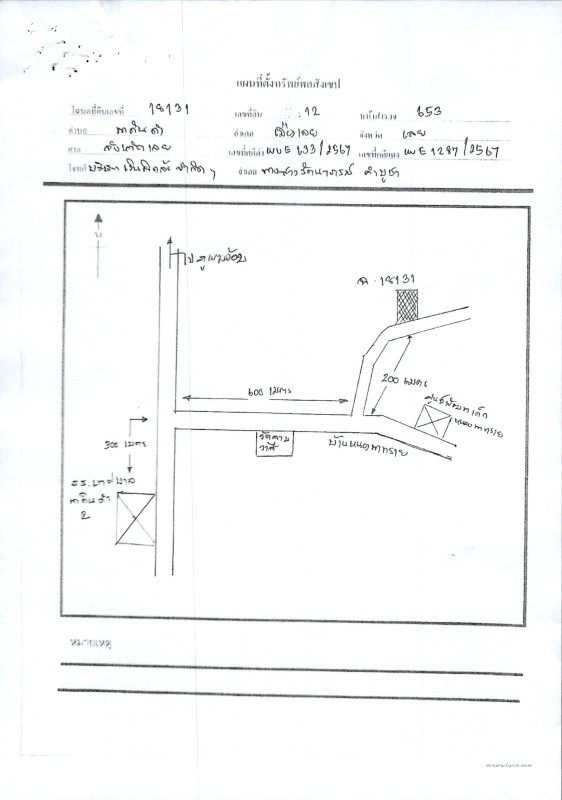 แผนที่ตั้งทรัพย์พอสังเขป
โฉนดที่ดินเลขที่ 18131 เลขที่ดิน 12 หน้าสำรวจ 653
ตำบล นาดินดำ อำเภอ เมืองเลย จังหวัด เลย
ศาล จังหวัดเลย เลขที่คดีดำ ผบE 633/2567 เลขที่คดีแดง ผบE 1287/2567
โจทก์ บริษัท จำกัด ฯ จำเลย นางสาว
น
ไป ภู
ฉ.18131
600 เมตร
200 เมตร
ศูนย์พัฒนาเด็ก
หนองนาทราย
300 เมตร
วัดตาม
วาสี
บ้านหนองนาทราย
รร.เทศบาล
นาดินดำ
2
หมายเหตุ